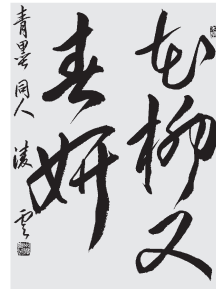 花柳又
春妍
青墨同人 凌雲